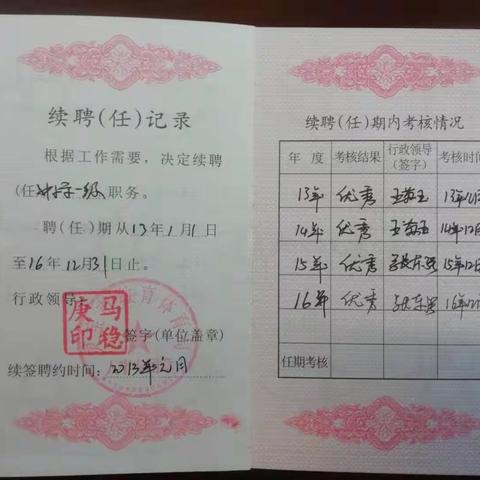 续聘(任)记录
根据工作需要,决定续聘
(任)中学一级职务。
聘(任)期从13年1月1日
至16年12月31日止。
行政领导:
马稳
庚印
签字(单位盖章)
续签聘约时间:2013年元月
续聘(任)期内考核情况
年 度 考核结果 行政领导(签字) 考核时间
13年 优秀
14年 优秀
15年 优秀
16年 优秀
任期考核